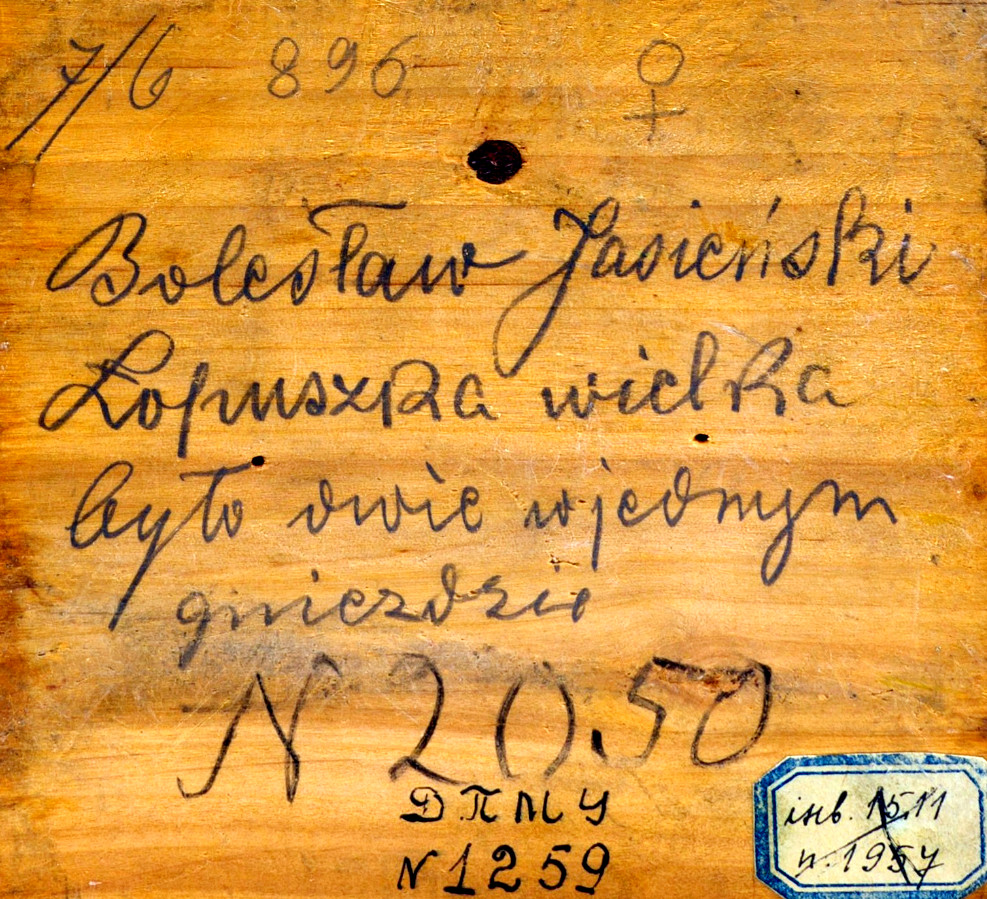 7/6 896 ♀
Bolesław Jasieński
Łopuszka wielka
było dwie w jednym
gniezdzie
N 20.50
ДПМУ
N1259
інв. 1511
п. 1957